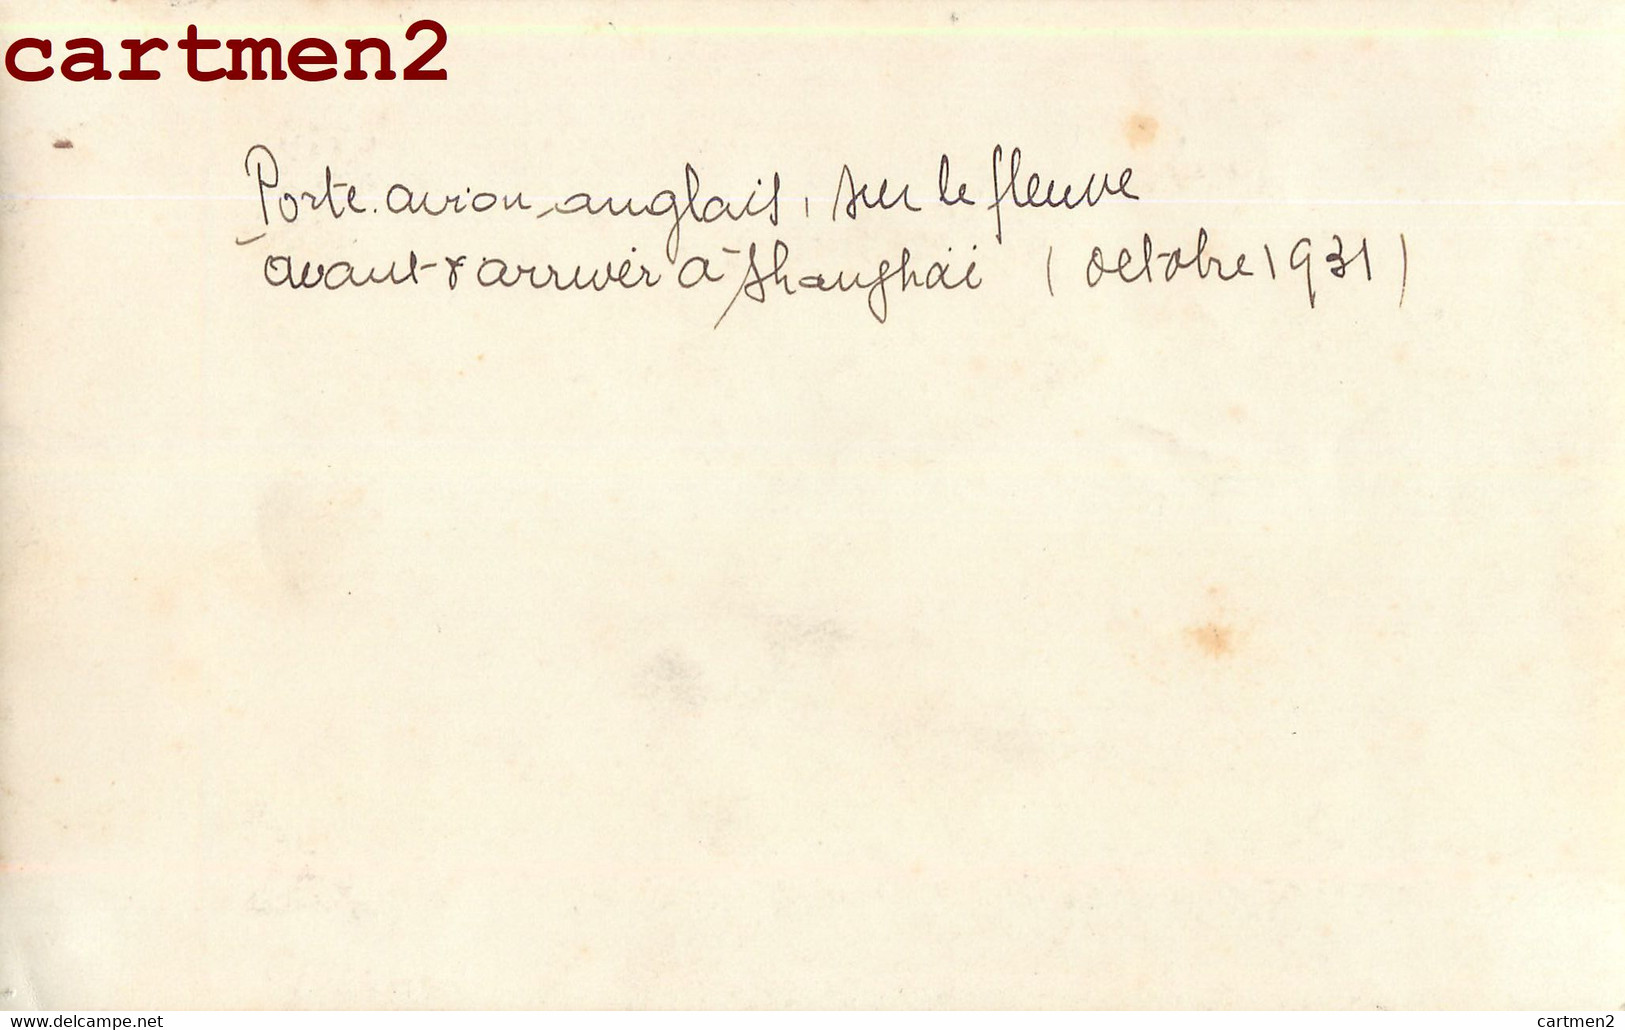 cartmen2
Porte.avion anglais, sur le fleuve
avant d'arriver à Shanghaï (octobre 1931)
www.delcampe.net
cartmen2